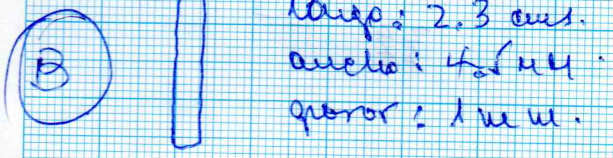 largo: 2.3 cms.
B
ancho: 4.5 mm.
grosor: 1 mm.